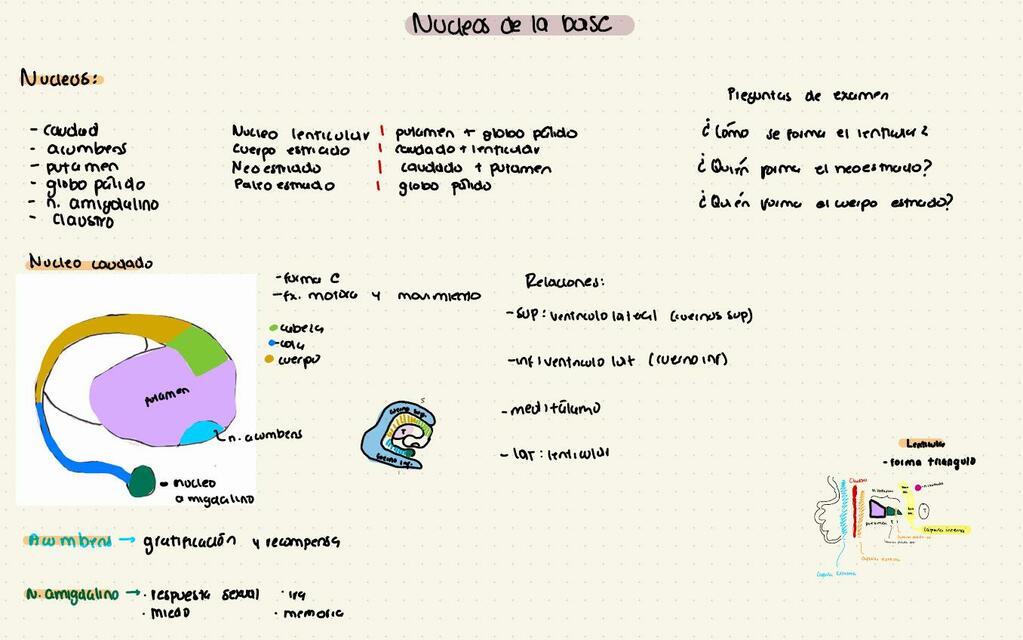 Nucleos de la base
Nucleos:
- caudad
- acumbens
- putamen
- globo pálido
- n. amigdalino
- claustro
Nucleo lenticular | putamen + globo pálido
Cuerpo estriado | caudado + lenticular
Neoestriado | caudado + putamen
Paleo estriado | globo pálido
Preguntas de examen
¿Cómo se forma el lenticular?
¿Quién forma el neoestriado?
¿Quién forma el cuerpo estriado?
Nucleo caudado
- forma C
- fx. motora y movimiento
cabeza
cola
cuerpo
putamen
n. acumbens
nucleo
amigdalino
Relaciones:
- sup: ventriculo lateral (cuernos sup)
- inf: ventriculo lat (cuerno inf)
- med: tálamo
- lat: lenticular
S
cuerno sup.
T
cuerno inf.
Lenticular
- forma triangulo
Claustro
putamen
T
Capsula interna
Capsula externa
Capsula extrema
Acumbens → gratificación y recompensa
N. amigdalino → · respuesta sexual · ira
· miedo · memoria